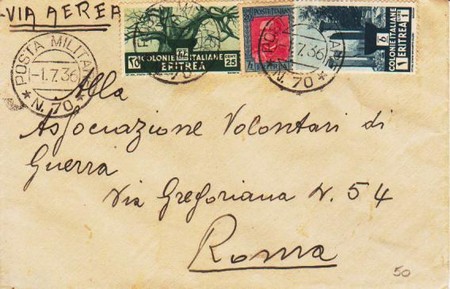 VIA AEREA
POSTA MILITARE
1.7.36
N. 70
10 COLONIE ITALIANE CENT. 25
ERITREA
POSTE ITALIANE
N. 70
1.7.36
COLONIE ITALIANE
ERITREA 1
Alla
Associazione Volontari di
Guerra
Via Gregoriana N. 54
Roma
50